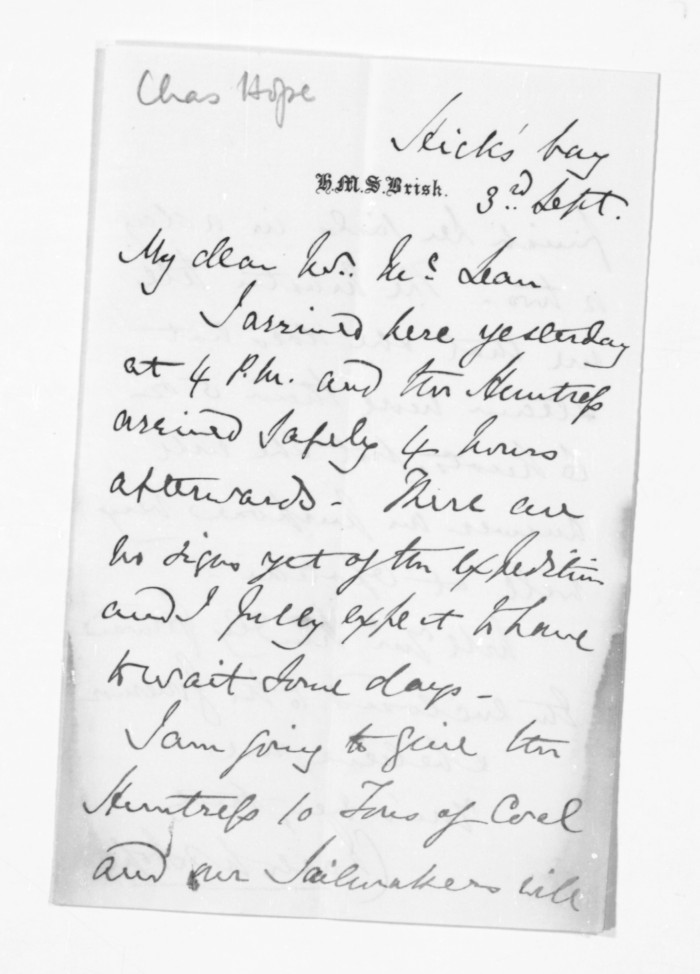 Chas Hope
Hick's bay
H.M.S. Brisk.
3rd Sept.
My dear Mr. Mc Lean
I arrived here yesterday
at 4 P.M. and the Huntress
arrived safely 4 hours
afterwards - There are
no signs yet of the expedition
and I fully expect to have
to wait some days -
I am going to give the
Huntress 10 Tons of Coal
and our Sailmakers will